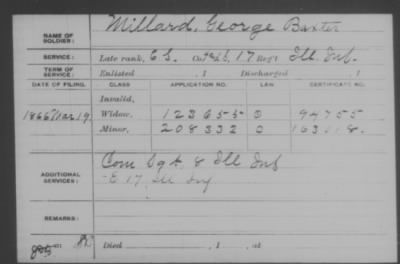 NAME OF SOLDIER: Millard, George Baxter
SERVICE: Late rank, C.S. Co. F&S, 17 Reg't Ill. Inf.
TERM OF SERVICE: Enlisted , 1 Discharged , 1
DATE OF FILING. CLASS APPLICATION NO. LAW CERTIFICATE NO.
Invalid,
1866 Mar 19. Widow, 123655 O 94755
Minor, 208332 O
ADDITIONAL SERVICES: Com Sgt 8 Ill Inf
E 17 Ill Inf
REMARKS:
Died , 1 , at